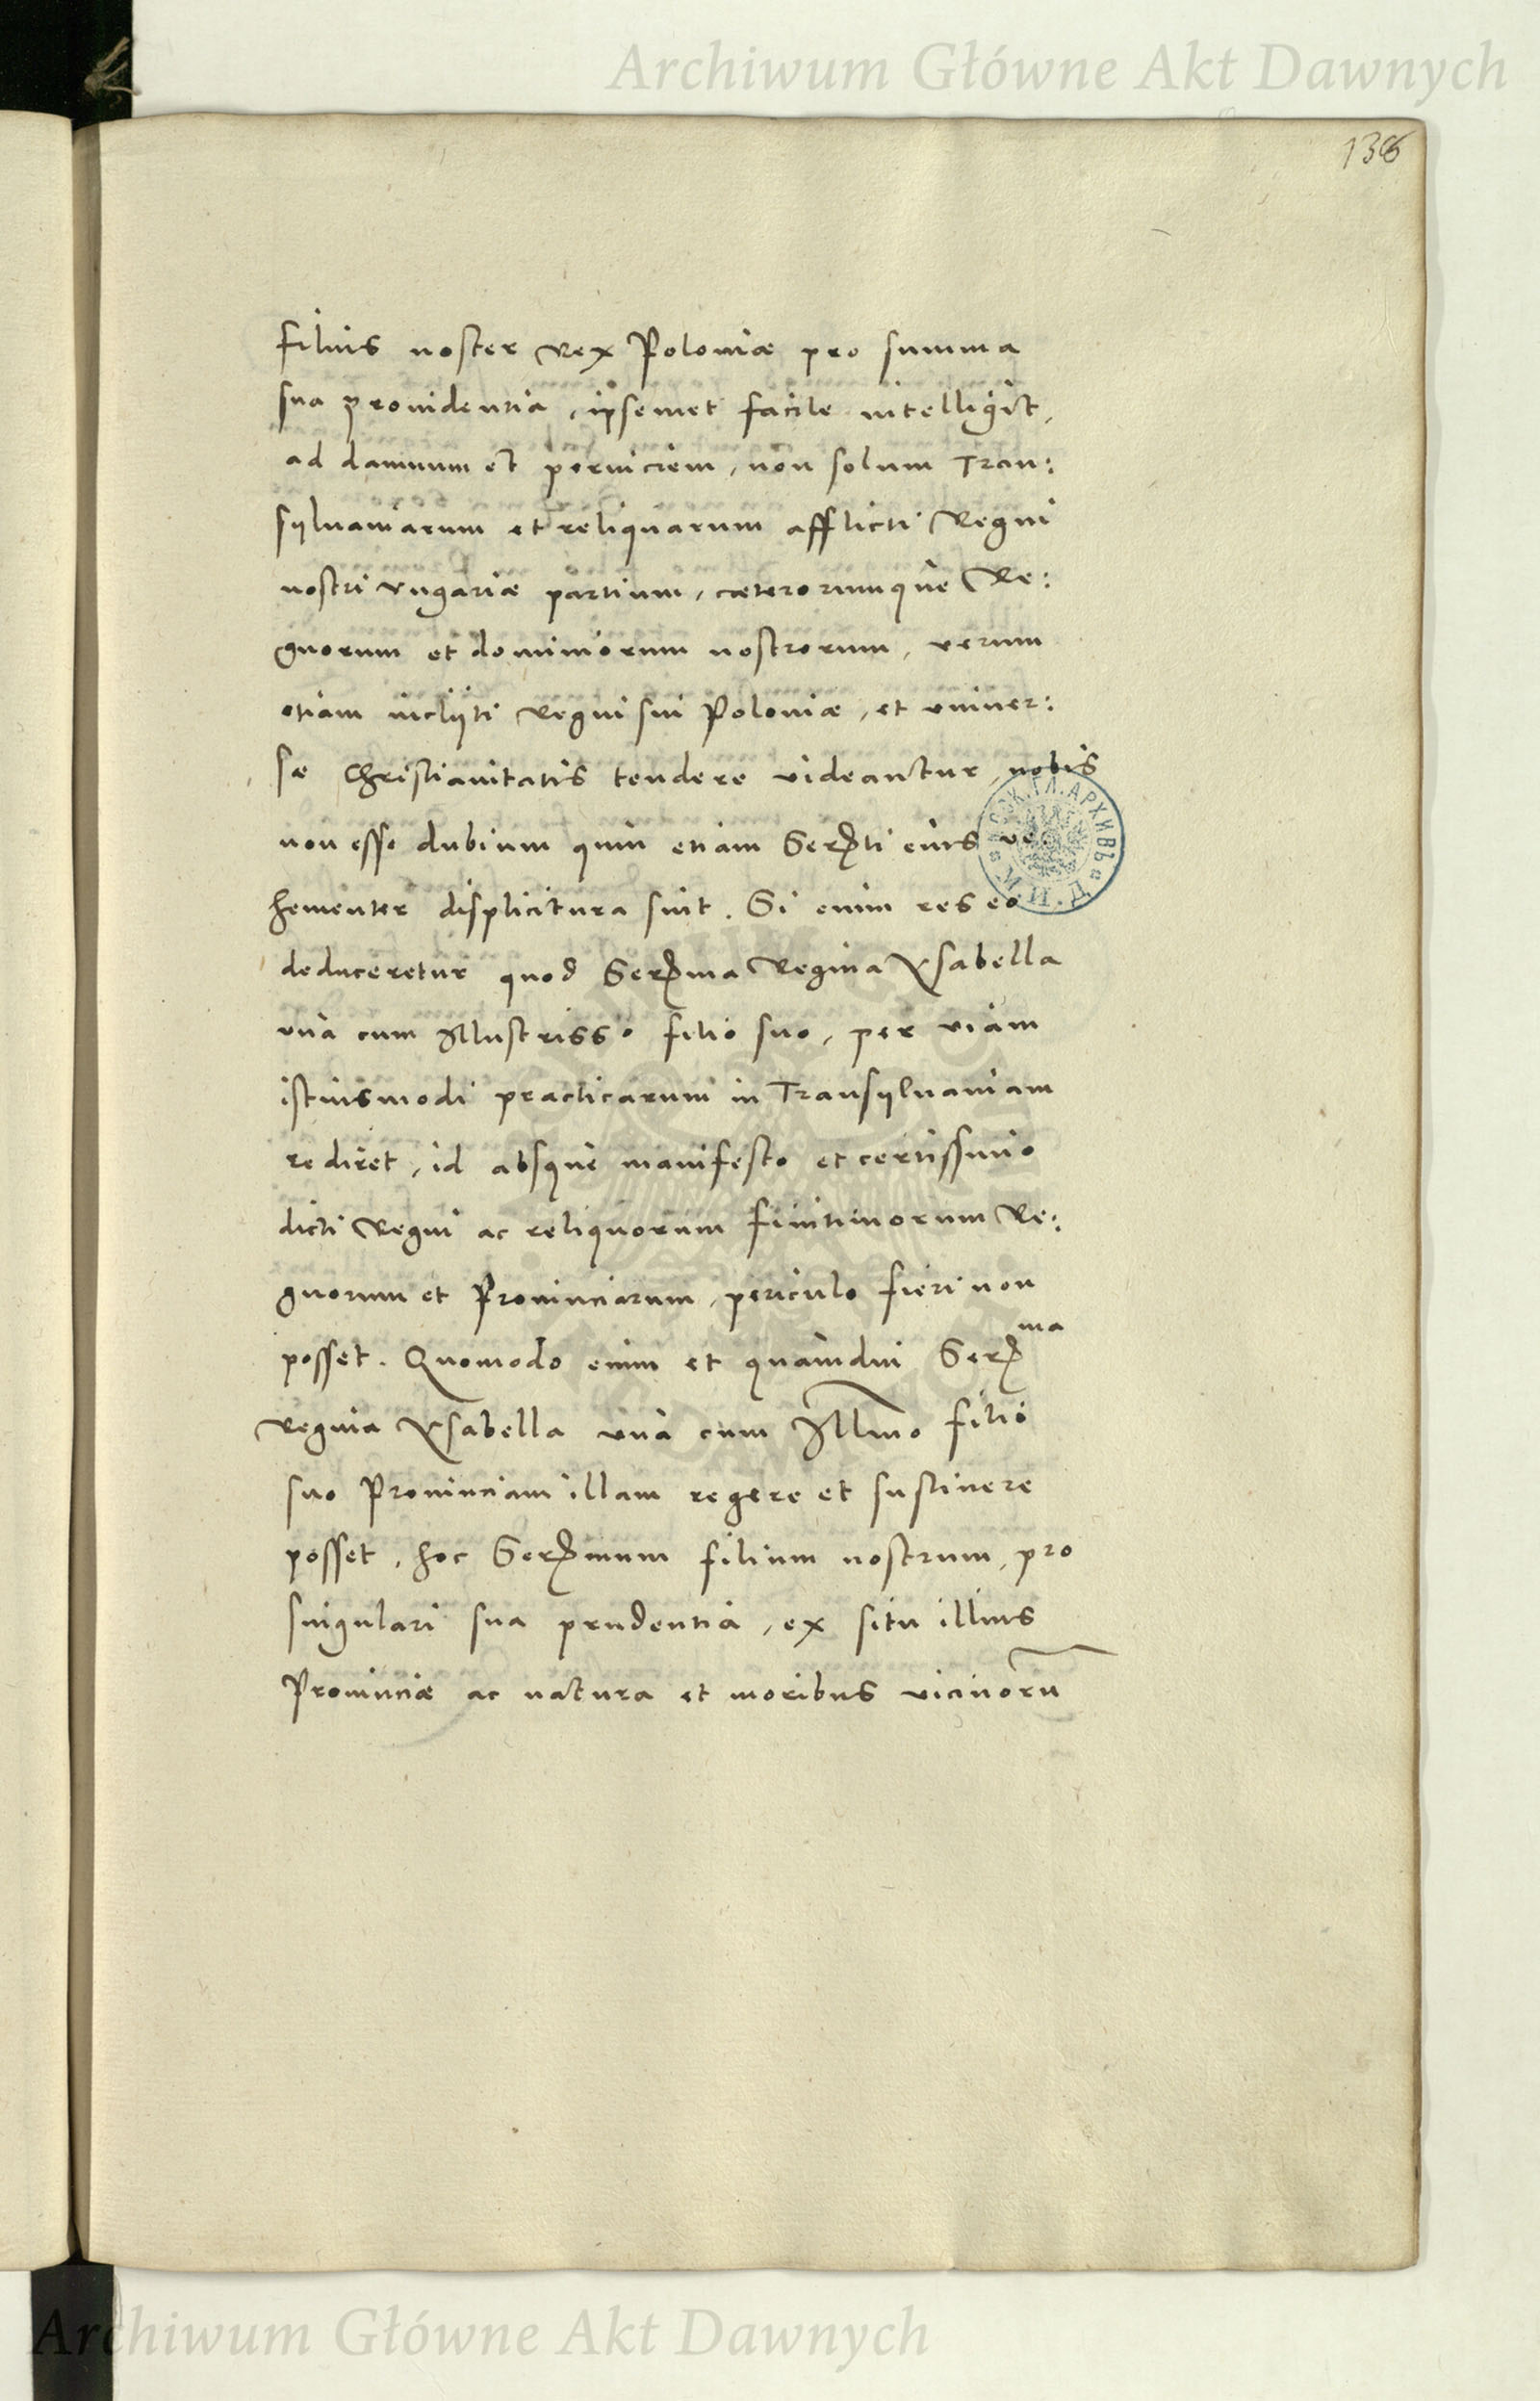 Archiwum Główne Akt Dawnych
136
filius noster Rex Poloniæ pro summa
sua prouidentia, ipsemet facile intelligit,
ad damnum et perniciem, non solum Tran:
syluaniarum et reliquarum afflicti Regni
nostri Vngariæ partium, cæterorumque Re:
gnorum et dominiorum nostrorum, verum
etiam inclyti Regni sui Poloniæ, et vniuer:
sæ Christianitatis tendere videantur, nobis
non esse dubium quin etiam Serti eius ve:
hementer displicitura sint. Si enim res eo
deduceretur quod Serma Regina Ysabella
vna cum Illustrisso filio suo, per viam
istiusmodi practicarum in Transyluaniam
rediret, id absque manifesto et certissimo
dicti Regni ac reliquorum finitimorum Re:
gnorum et Prouinciarum, periculo fieri non
posset. Quomodo enim et quamdiu Serma
Regina Ysabella vna cum Illmo filio
suo Prouinciam illam regere et sustinere
posset, hoc Sermum filium nostrum, pro
singulari sua prudentia, ex situ illius
Prouinciæ ac natura et moribus vicinorū
Archiwum Główne Akt Dawnych